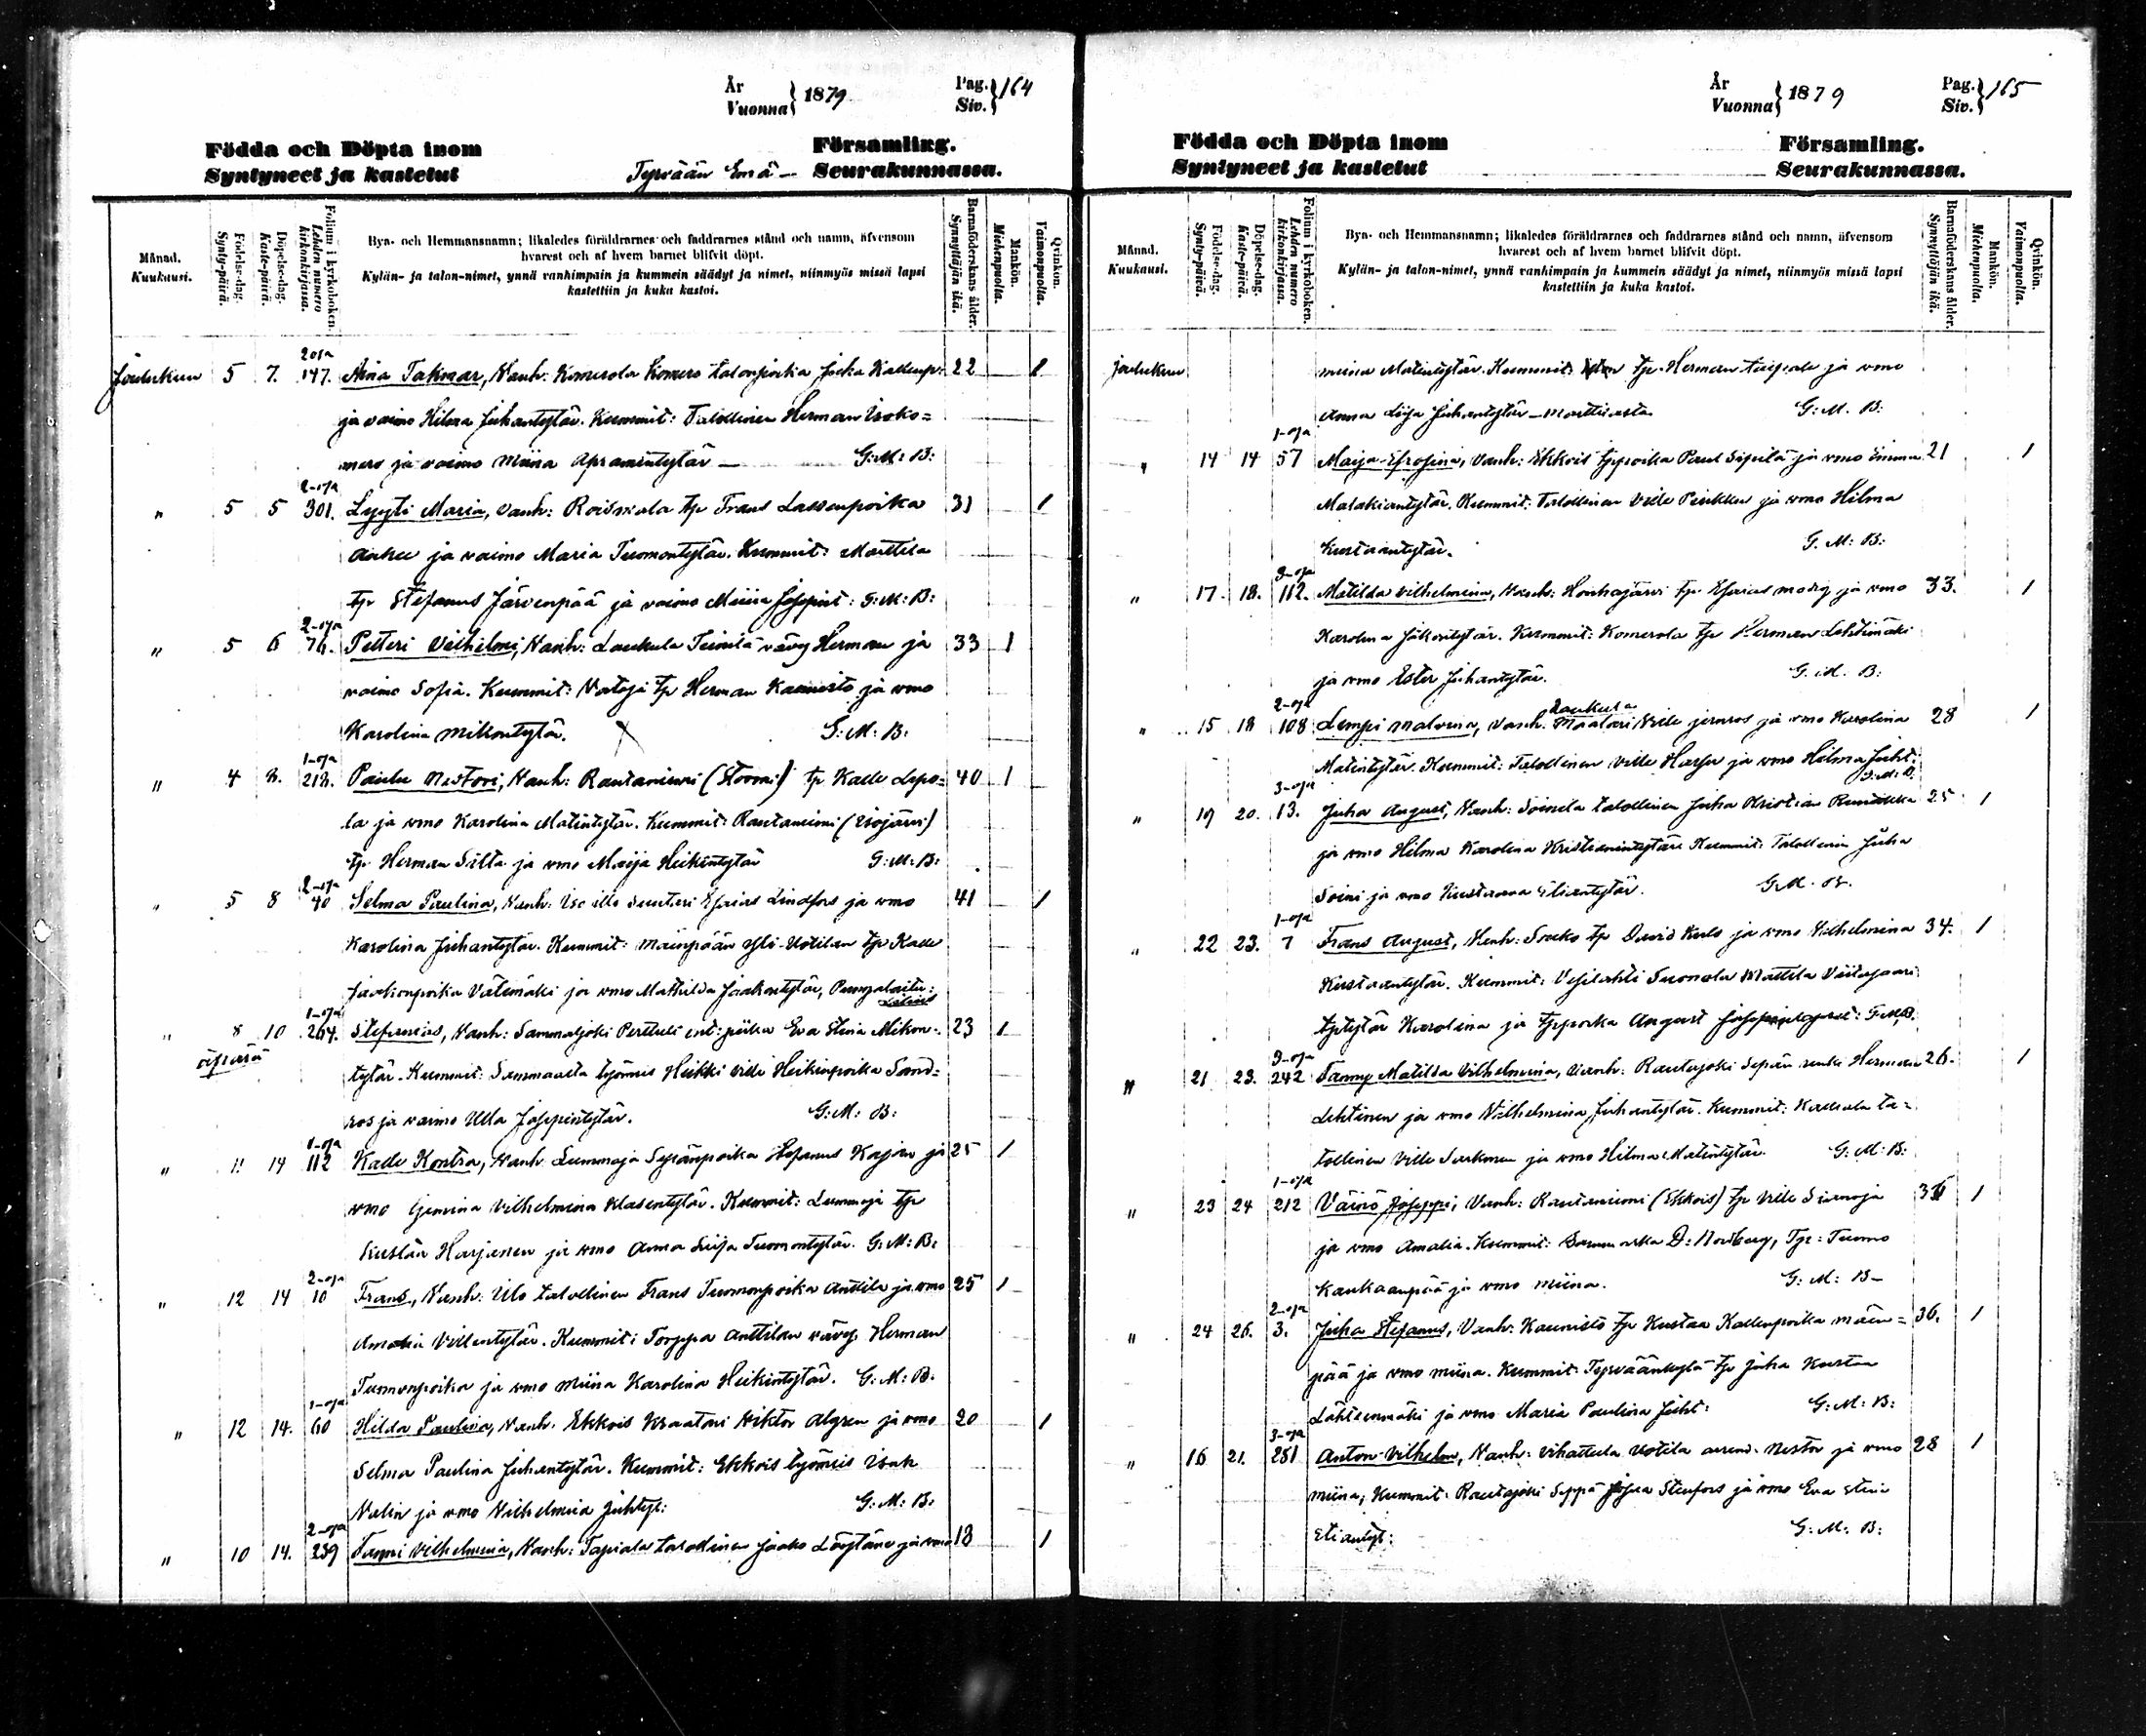 År
Vuonna} 1879
Pag.
Siv.} 164
Födda och Döpta inom Församling.
Syntyneet ja kastetut Tyrvään Emä- Seurakunnassa.
Månad.
Kuukausi.
Födelse-dag.
Synty-päivä.
Döpelse-dag.
Kaste-päivä.
Folium i kyrkoboken.
Lehden numero kirkonkirjassa.
Bya- och Hemmansnamn; likaledes föräldrarnes och faddrarnes stånd och namn, äfvensom
hvarest och af hvem barnet blifvit döpt.
Kylän- ja talon-nimet, ynnä vanhimpain ja kummein säädyt ja nimet, niinmyös missä lapsi
kastettiin ja kuka kastoi.
Barnaföderskans ålder.
Synnyttäjän ikä.
Mankön.
Miehenpuolta.
Qvinkön.
Vaimonpuolta.
Joulukuu 5 7. 2 osa 147. Aina Vanh: Komerola Komero talonpoika 22 1
ja vaimo Hilma Juhantytär. Kummit: Talollinen Herman Isoko=
mero ja vaimo Miina G: M: B:
" 5 5 2-osa 301. Lyyti Maria, Vanh: Roismala tp Frans Lassenpoika 31 1
ja vaimo Maria Tuomontytär. Kummit: Marttila
tp Stefanus Järvenpää ja vaimo Miina G: M: B:
" 5 6 2-osa 76. Petteri Vilhelmi, Vanh: Laukula vävy Herman ja 33 1
vaimo Sofia. Kummit: Vataja tp Herman Kaunisto ja vmo
Karolina Mikontytär. X G: M: B:
" 4 8. 1-osa 218. Paulu Nestori, Vanh: Rautaniemi (Stormi) tp Kalle Lepo= 40 1
la ja vmo Karolina Matintytär. Kummit: Rautaniemi (Isojärvi)
tp Herman Silta ja vmo Maija Heikintytär G: M: B:
" 5 8 2-osa 40 Selma Paulina, Vanh: suutari Esaias Lindfors ja vmo 41 1
Karolina Juhantytär. Kummit: Yli-Uotilan tp Kalle
Jaakonpoika ja vmo Mathilda Jaakontytär,
" 8 10 1-osa 264. Stefanus, Vanh: Sammaljoki Perttuli piika Eva Stina Mikon- 23 1
äpärä
tytär. Kummit: työmies Heikki Ville Heikinpoika Sand=
ros ja vaimo Ulla Josepintytär. G: M: B:
" 11 14 1-osa 112 Kalle Kontra, Vanh: Lummaja Stefanus ja 25 1
vmo Vilhelmina Kummit: Lummaja tp
Kustaa Harjanen ja vmo Anna Liisa Tuomontytär. G: M: B:
" 12 14 2-osa 10 Frans, Vanh: Ulo talollinen Frans Tuomonpoika Anttila ja vmo 25 1
Amalia Villentytär. Kummit: Torppa Anttilan vävy Herman
Tuomonpoika ja vmo Miina Karolina Heikintytär. G: M: B:
" 12 14. 1-osa 60 Hilda Paulina, Vanh: Ekkois Kraatari Viktor Algren ja vmo 20 1
Selma Paulina Juhantytär. Kummit: Ekkois työmies Isak
Valin ja vmo Vilhelmina Juhtyt: G: M: B:
" 10 14. 2-osa 239 Fanni Vilhelmina, Vanh: Tapiala talollinen Jaako ja vmo 18 1
År
Vuonna} 1879
Pag.
Siv.} 165
Födda och Döpta inom Församling.
Syntyneet ja kastetut Seurakunnassa.
Månad.
Kuukausi.
Födelse-dag.
Synty-päivä.
Döpelse-dag.
Kaste-päivä.
Folium i kyrkoboken.
Lehden numero kirkonkirjassa.
Bya- och Hemmansnamn; likaledes föräldrarnes och faddrarnes stånd och namn, äfvensom
hvarest och af hvem barnet blifvit döpt.
Kylän- ja talon-nimet, ynnä vanhimpain ja kummein säädyt ja nimet, niinmyös missä lapsi
kastettiin ja kuka kastoi.
Barnaföderskans ålder.
Synnyttäjän ikä.
Mankön.
Miehenpuolta.
Qvinkön.
Vaimonpuolta.
Joulukuu miina Matintytär. Kummit: tp. Herman ja vmo
Anna Liisa Juhantytär G: M: B:
" 14 14 1-osa 57 Maija Efrosina, Vanh: Ekkois tppoika Paul Sipilä ja vmo Emma 21 1
Malakiantytär. Kummit: Talollinen Ville Pirkken ja vmo Hilma
Kustaantytär. G. M: B:
" 17. 18. 3-osa 112. Matilda Vilhelmina, Vanh: Houhajärvi tp Esaias ja vmo 33. 1
Karolina Kummit: Komerola tp Herman Lehtimäki
ja vmo Ester Juhantytär. G. M. B:
" 15 18 2-osa 108 Lempi Malvina, Vanh: Laukula Maalari Ville ja vmo Karolina 28 1
Matintytär. Kummit: Talollinen Ville ja vmo Hilma Juht: G: M: B:
" 19 20. 3-osa 13. Juha August, Vanh: Soinila talollinen Juha Kristian 25 1
ja vmo Hilma Karolina Kristianintytär Kummit: Talollinen Juha
Soini ja vmo Kustaava Eliantytär. G. M. B.
" 22 23. 1-osa 7 Frans August, Vanh: tp David ja vmo Vilhelmina 34. 1
Kustaantytär. Kummit: Vesilahti Mattila
tptytär Karolina ja tppoika August G: M: B.
" 21 23. 3-osa 242 Fanny Matilda Vilhelmina, Vanh: Rautajoki Sepän renki Herman 26. 1
Lehtinen ja vmo Vilhelmina Juhantytär. Kummit: Kaltsila ta=
lollinen Ville ja vmo Hilma Matintytär. G: M: B:
" 23 24 1-osa 212 Väinö Joseppi, Vanh: Rautaniemi (Ekkois) tp Ville ja 36 1
ja vmo Amalia. Kummit: D: Nordberg, Tp: Tuomo
Kaukaanpää ja vmo Miina. G: M: B-
" 24 26. 2-osa 3. Juha Stefanus, Vanh: Kaunisto tp Kustaa Kallenpoika män= 36. 1
pää ja vmo Miina. Kummit: Tyrväänkylä tp Juha Kustaa
Lähteenmäki ja vmo Maria Paulina Juht: G: M: B:
" 16 21. 3-osa 281 Anton Vilhelm, Vanh: Vihattula Uotila Nestor ja vmo 28 1
Miina, Kummit: Rautajoki Seppä Stenfors ja vmo Eva Stina
Eliantyt: G: M: B: